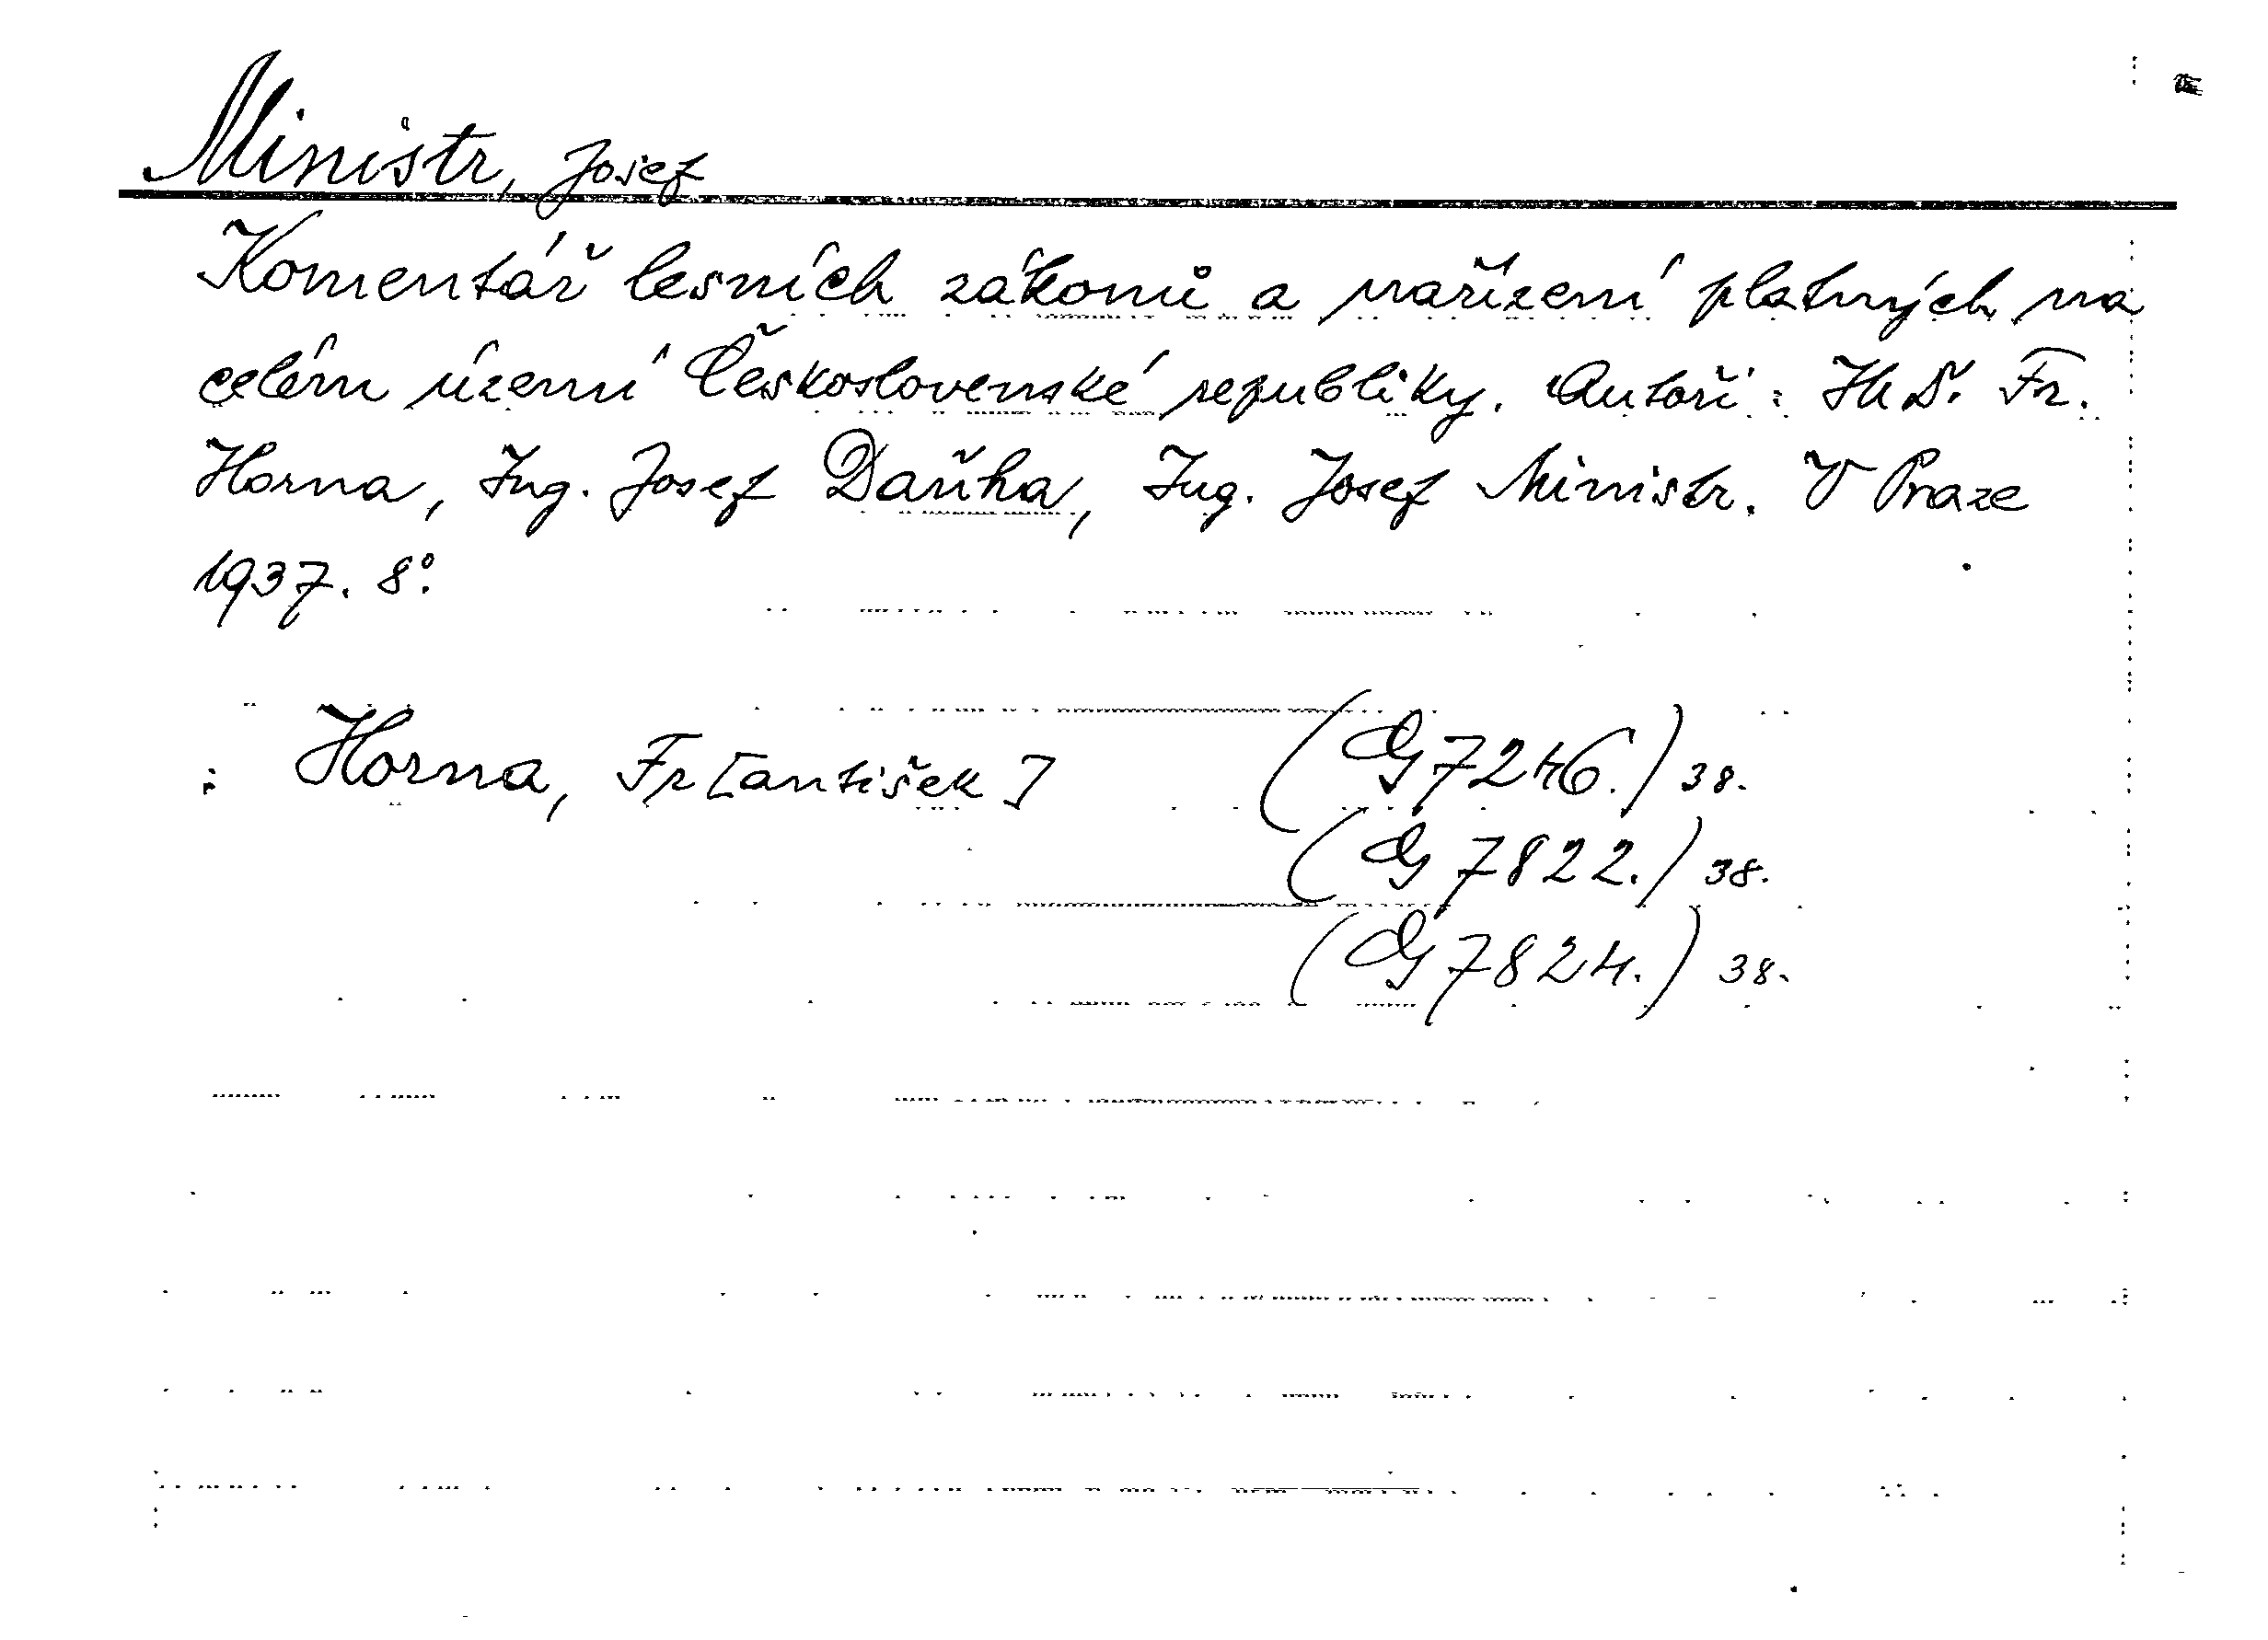 Ministr, Josef
Komentář lesních zákonů a nařízení platných na
celém území Československé republiky. Autoři: Fr.
Horna, Ing. Josef Daňha, Ing. Josef Ministr. V Praze
1937. 8°.
: Horna, Fr[antišek] (G 7246.) 38.
(G 7822.) 38.
(G 7824.) 38.